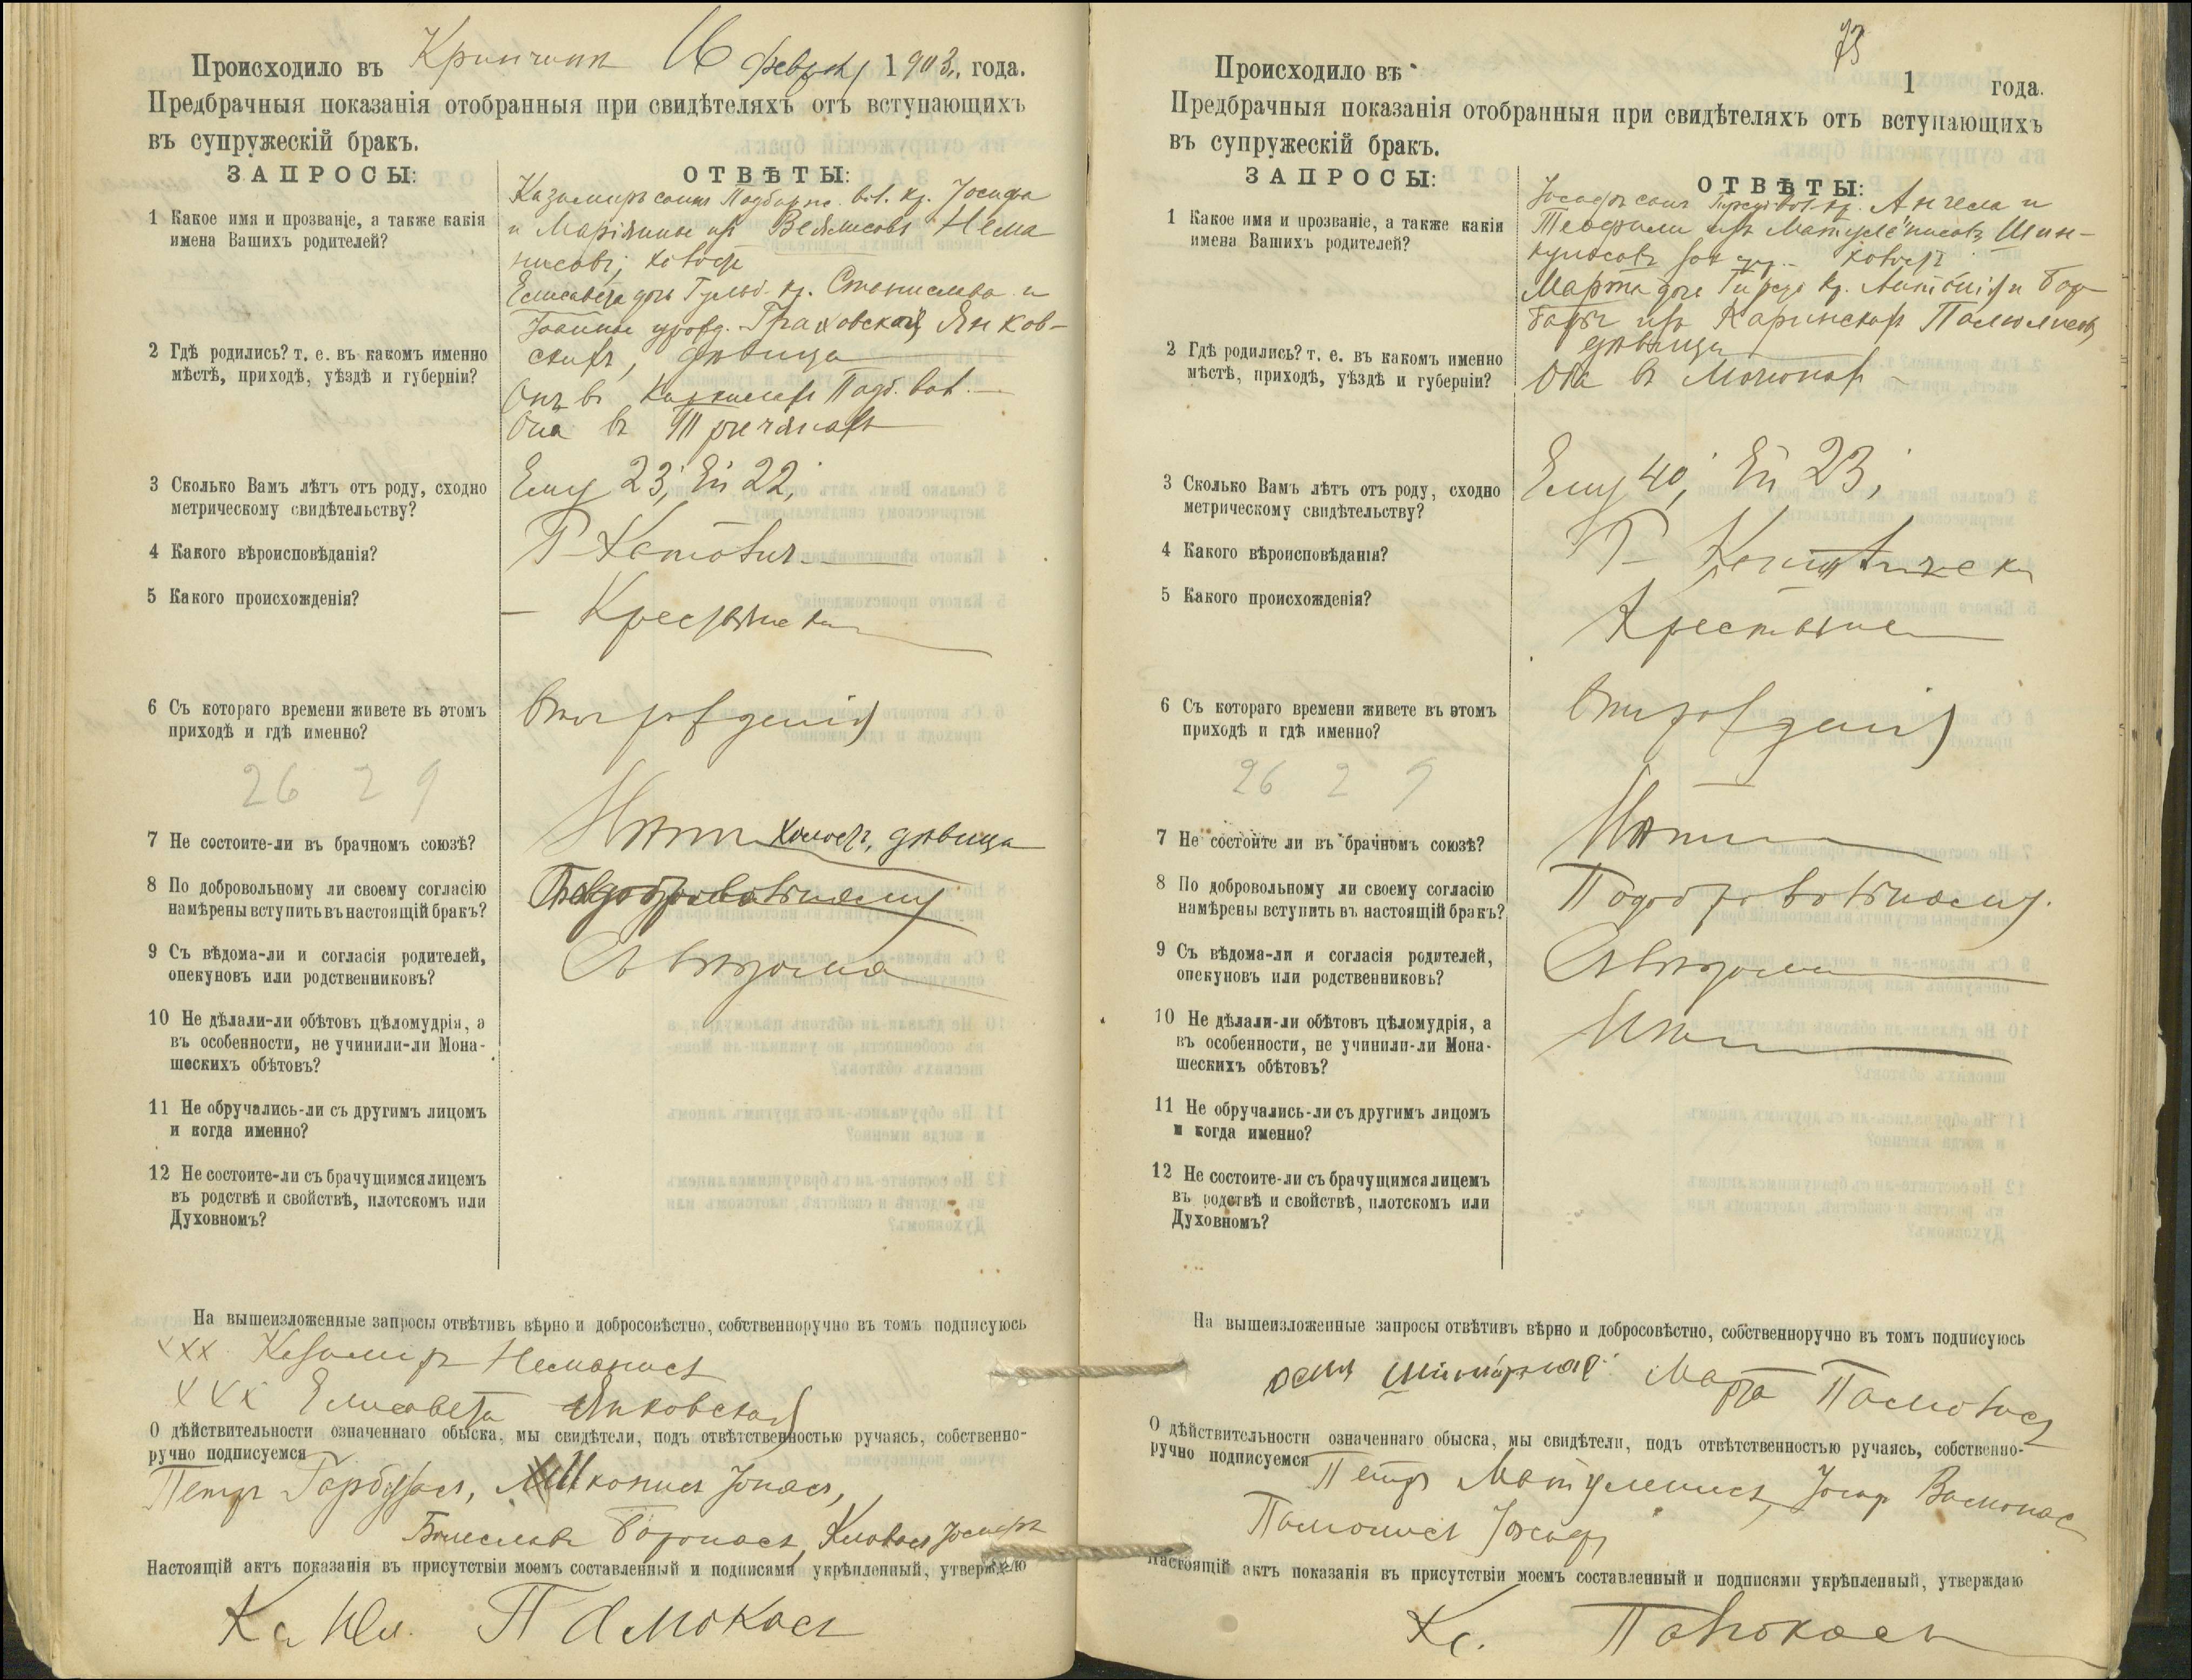 Происходило въ Кринчин 16 февраля 1903 г. года.
Предбрачныя показанія отобранныя при свидѣтеляхъ отъ вступающихъ
въ супружескій бракъ.
ЗАПРОСЫ:
ОТВѢТЫ:
1 Какое имя и прозваніе, а также какія
имена Вашихъ родителей?
Казимиръ сынъ вол. кр. Іосифа
и Маріянны
Елисавета дочь кр. Станислава и
Іоанны урожд. Янков-
скихъ, дѣвица
2 Гдѣ родились? т. е. въ какомъ именно
мѣстѣ, приходѣ, уѣздѣ и губерніи?
Онъ въ вол.
Она въ
3 Сколько Вамъ лѣтъ отъ роду, сходно
метрическому свидѣтельству?
Ему 23; Ей 22;
4 Какого вѣроисповѣданія?
Р-Католич.
5 Какого происхожденія?
Крестьяне
6 Съ котораго времени живете въ этомъ
приходѣ и гдѣ именно?
Отъ рожденія
26 2 9
7 Не состоите-ли въ брачномъ союзѣ?
Нѣтъ холостъ, дѣвица
8 По добровольному ли своему согласію
намѣрены вступить въ настоящій бракъ?
По добровольному
9 Съ вѣдома-ли и согласія родителей,
опекуновъ или родственниковъ?
Съ вѣдома
10 Не дѣлали-ли обѣтовъ цѣломудрія, а
въ особенности, не учинили-ли Мона-
шескихъ обѣтовъ?
11 Не обручались-ли съ другимъ лицомъ
и когда именно?
12 Не состоите-ли съ брачущимся лицемъ
въ родствѣ и свойствѣ, плотскомъ или
Духовномъ?
На вышеизложенные запросы отвѣтивъ вѣрно и добросовѣстно, собственноручно въ томъ подписуюсь
xxx Казимиръ
xxx Елисавета Янковская
О дѣйствительности означеннаго обыска, мы свидѣтели, подъ отвѣтственностью ручаясь, собственно-
ручно подписуемся
Петръ Іонасъ,
Болеславъ
Настоящій актъ показанія въ присутствіи моемъ составленный и подписами укрѣпленный, утверждаю
Кс. Юл. Памокасъ
73
Происходило въ 1 года.
Предбрачныя показанія отобранныя при свидѣтеляхъ отъ вступающихъ
въ супружескій бракъ.
ЗАПРОСЫ:
ОТВѢТЫ:
1 Какое имя и прозваніе, а также какія
имена Вашихъ родителей?
сынъ кр. Ангела и
Теофили изъ
Марта дочь кр. Антонія и Бар-
бары изъ
дѣвица
2 Гдѣ родились? т. е. въ какомъ именно
мѣстѣ, приходѣ, уѣздѣ и губерніи?
Оба въ
3 Сколько Вамъ лѣтъ отъ роду, сходно
метрическому свидѣтельству?
Ему 40; Ей 23;
4 Какого вѣроисповѣданія?
Р-Католическ
5 Какого происхожденія?
Крестьяне
6 Съ котораго времени живете въ этомъ
приходѣ и гдѣ именно?
Отъ рожденія
26 2 9
7 Не состоите ли въ брачномъ союзѣ?
Нѣтъ
8 По добровольному ли своему согласію
намѣрены вступить въ настоящій бракъ?
По добровольному.
9 Съ вѣдома-ли и согласія родителей,
опекуновъ или родственниковъ?
Съ вѣдома
10 Не дѣлали-ли обѣтовъ цѣломудрія, а
въ особенности, не учинили-ли Мона-
шескихъ обѣтовъ?
Нѣтъ
11 Не обручались-ли съ другимъ лицомъ
и когда именно?
12 Не состоите-ли съ брачущимся лицемъ
въ родствѣ и свойствѣ, плотскомъ или
Духовномъ?
На вышеизложенные запросы отвѣтивъ вѣрно и добросовѣстно, собственноручно въ томъ подписуюсь
Марта
О дѣйствительности означеннаго обыска, мы свидѣтели, подъ отвѣтственностью ручаясь, собственно-
ручно подписуемся
Петръ Матуленисъ,
Настоящій актъ показанія въ присутствіи моемъ составленный и подписями укрѣпленный, утверждаю
Кс.